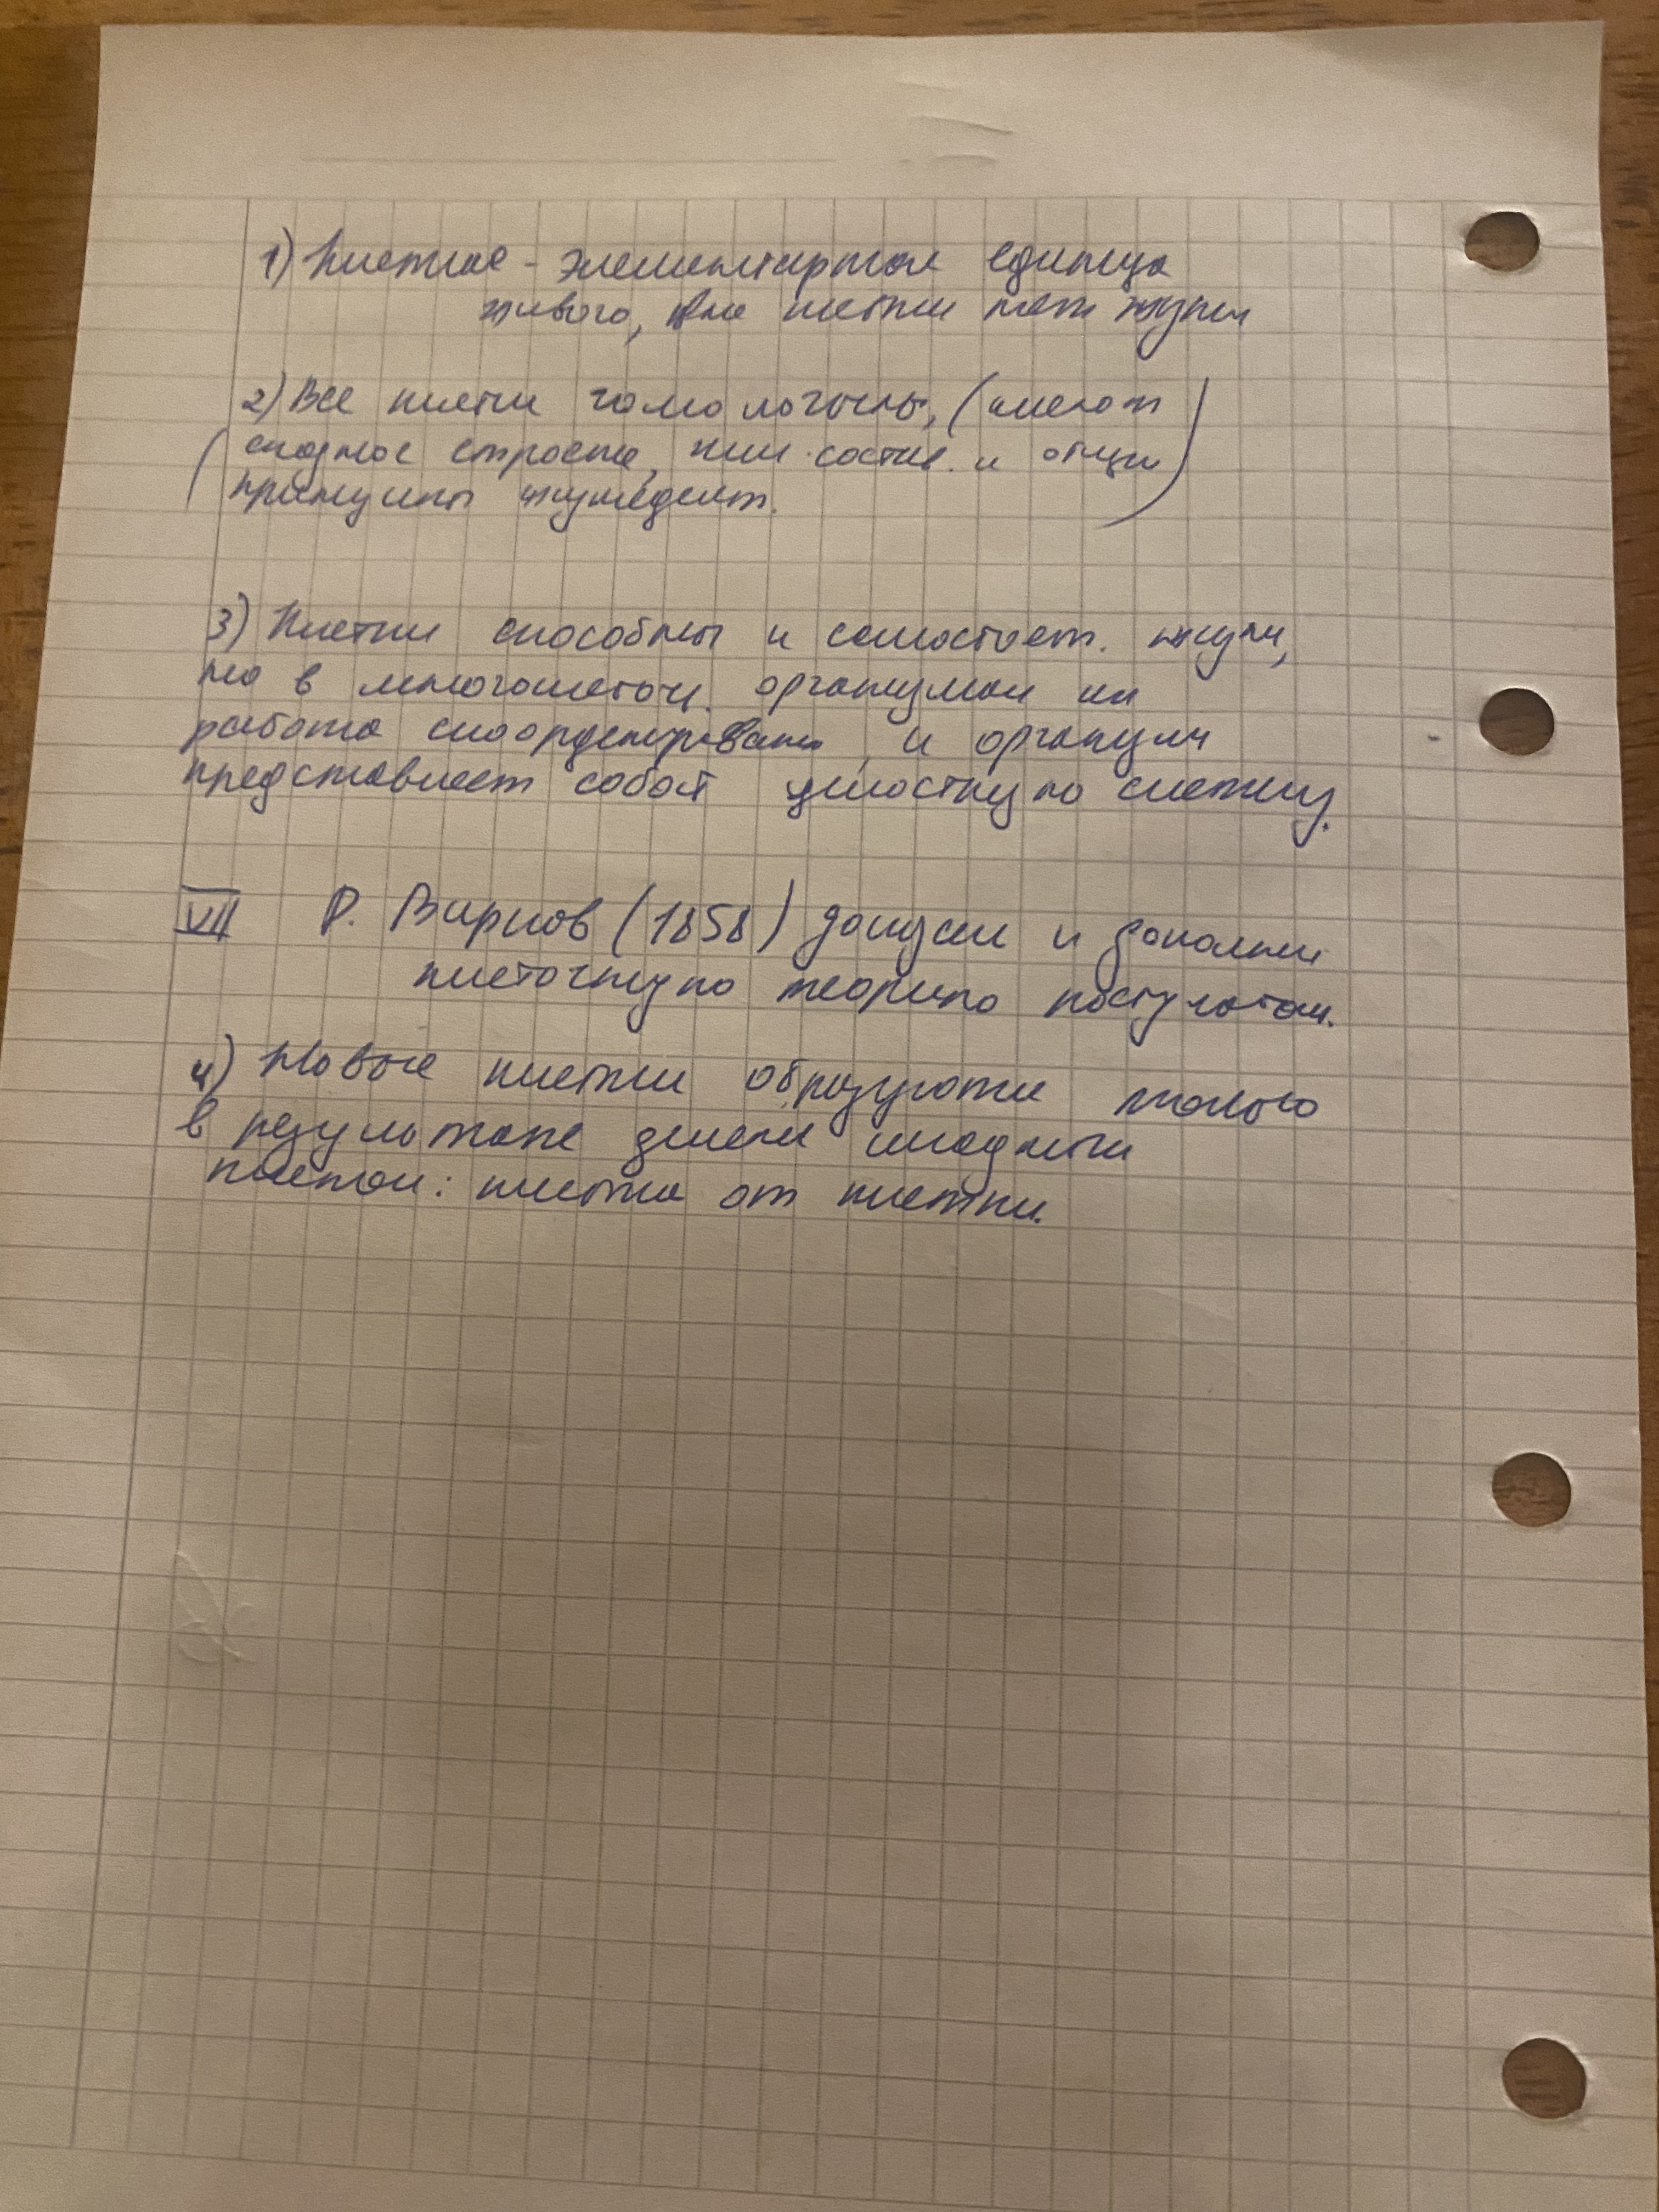 1) Клетка - элементарная единица
живого, вне клетки нет жизни
2) Все клетки гомологичны, (имеют
сходное строение, хим. состав. и общие
принципы жизнедеят.
3) Клетки способны к самостоят. жизни,
но в многоклеточ. организмах их
работа скоординирована, и организм
представляет собой целостную систему.
VII Р. Вирхов (1858) доказал и дополнил
клеточную теорию постулатом.
4) Новые клетки образуются только
в результате деления исходных
клеток: клетка от клетки.